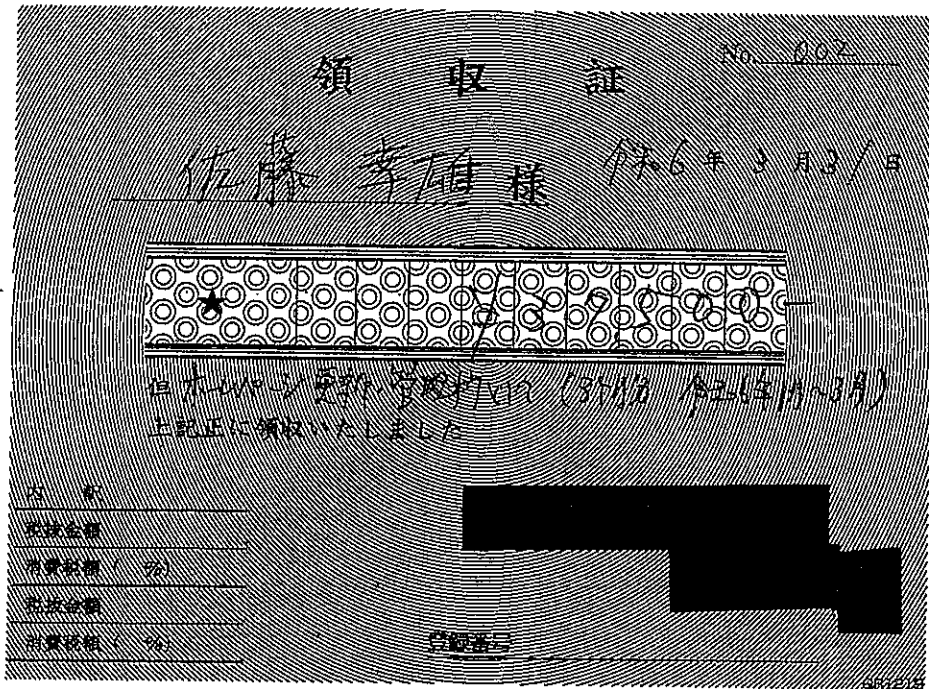 No. 002
領 収 証
佐藤 幸雄 様 令和6年3月31日
★ ¥37500
但 ホームページ更新・管理費代として (3ヶ月分 令和6年1月~3月)
上記正に領収いたしました
内 訳
税抜金額
消費税額( %)
税抜金額
消費税額( %)
登録番号